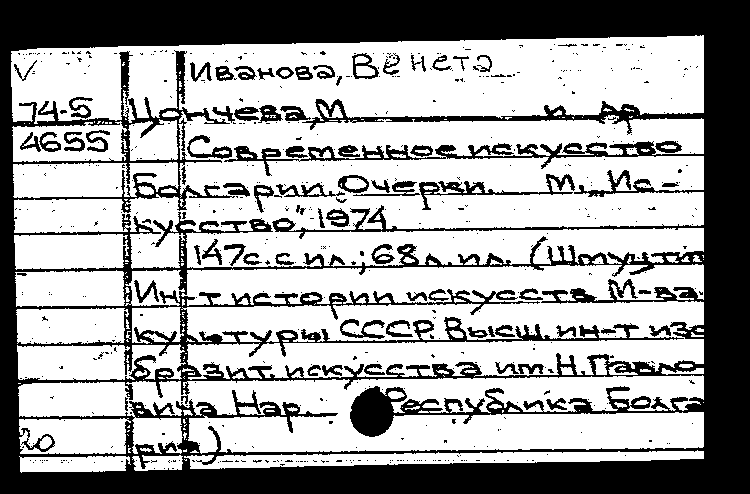 V Иванова, Венета
74-5 Цончева, М и др
4655 Современное искусство
Болгарии. Очерки. М., „Ис-
кусство", 1974.
147с. с ил.; 68л. ил. (
Ин-т истории искусств М-ва
культуры СССР. Высш. ин-т изо
бразит. искусства им. Н. Павло-
вича Нар. Республика Болга
20 рия).